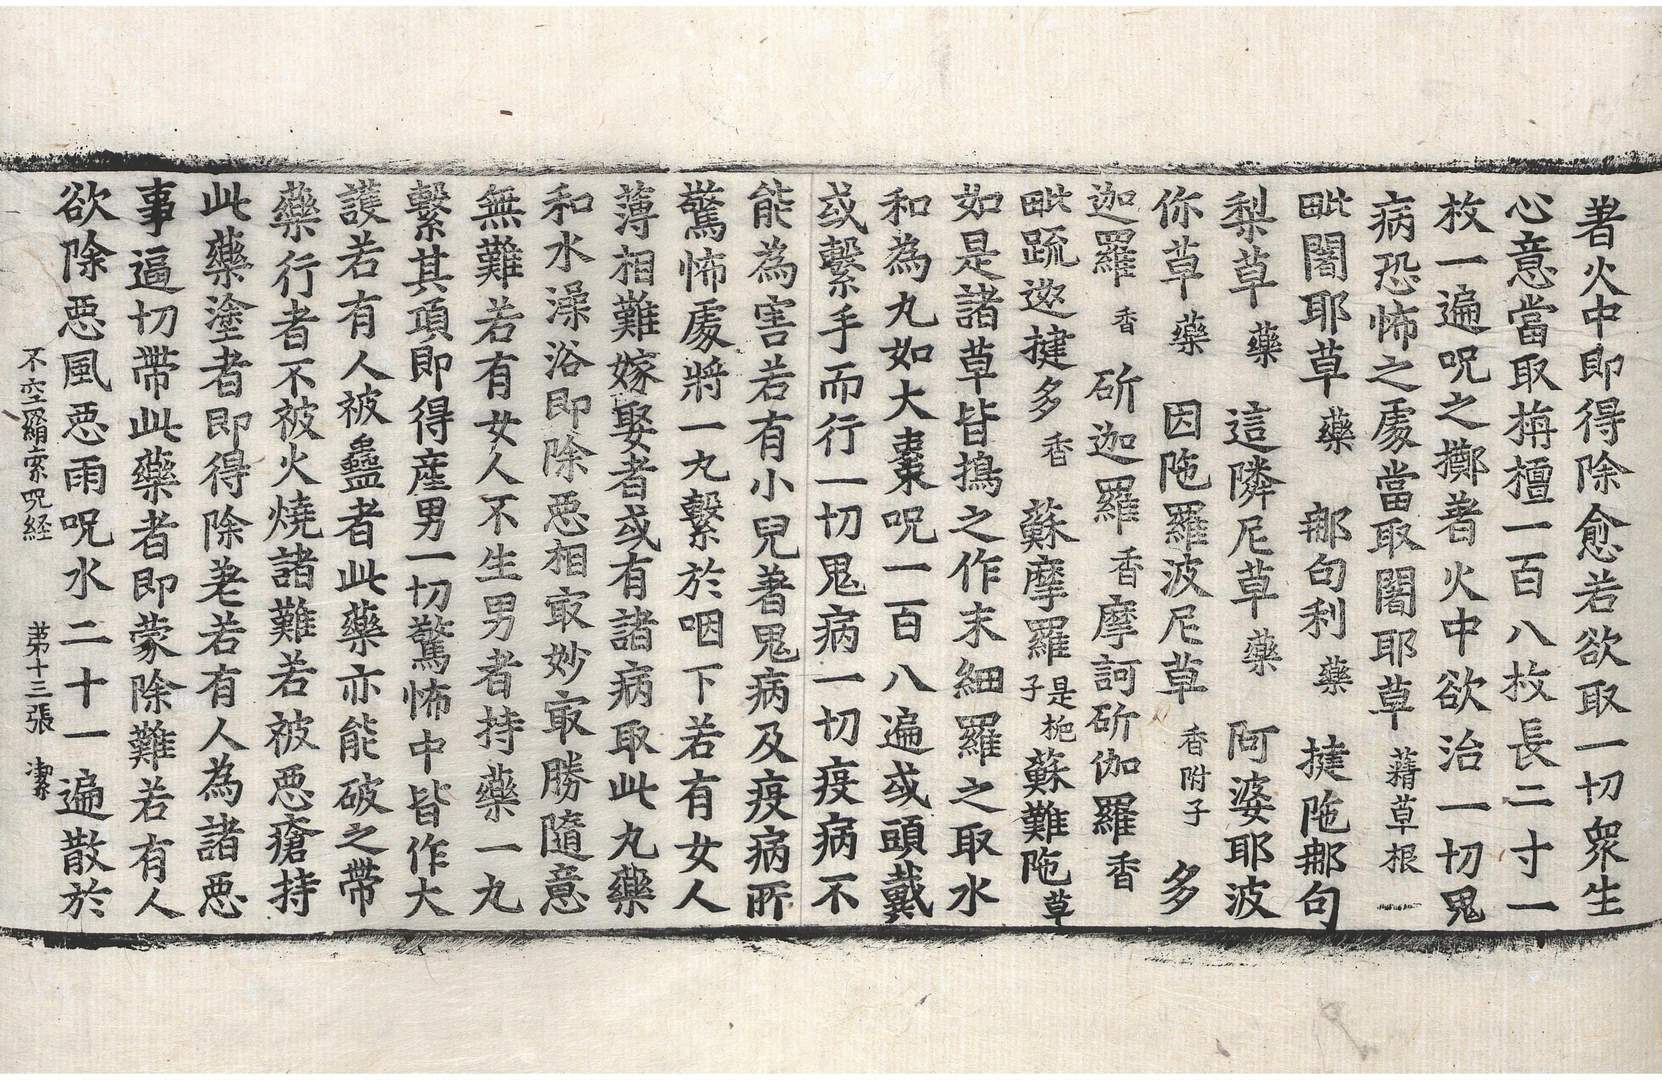 著火中即得除愈若欲取一切衆生
心意當取栴檀一百八枚長二寸一
枚一遍呪之擲著火中欲治一切鬼
病恐怖之處當取闍耶草藕草根一
毗闍耶草藥那句利藥揵陁那句
梨草藥這隣尼草藥阿婆耶波
你草藥因陁羅波尼草香附子多
迦羅香斫迦羅香摩訶斫伽羅香
毗䟽迩揵多香蘇摩羅是栀子蘇難陁草
如是諸草皆擣之作末細羅之取水
和為丸如大棗呪一百八遍或頭戴
或繫手而行一切鬼病一切疫病不
能為害若有小兒著鬼病及疫病所
驚怖處將一丸繫於咽下若有女人
薄相難嫁娶者或有諸病取此丸藥
和水澡浴即除惡相㝡妙㝡勝隨意
無難若有女人不生男者持藥一丸
繫其項即得產男一切驚怖中皆作大
護若有人被蠱者此藥亦能破之帶
藥行者不被火燒諸難若被惡瘡持
此藥塗者即得除差若有人為諸惡
事逼切帶此藥者即蒙除難若有人
欲除惡風惡雨呪水二十一遍散於
不空羂索呪経　第十三張　潔